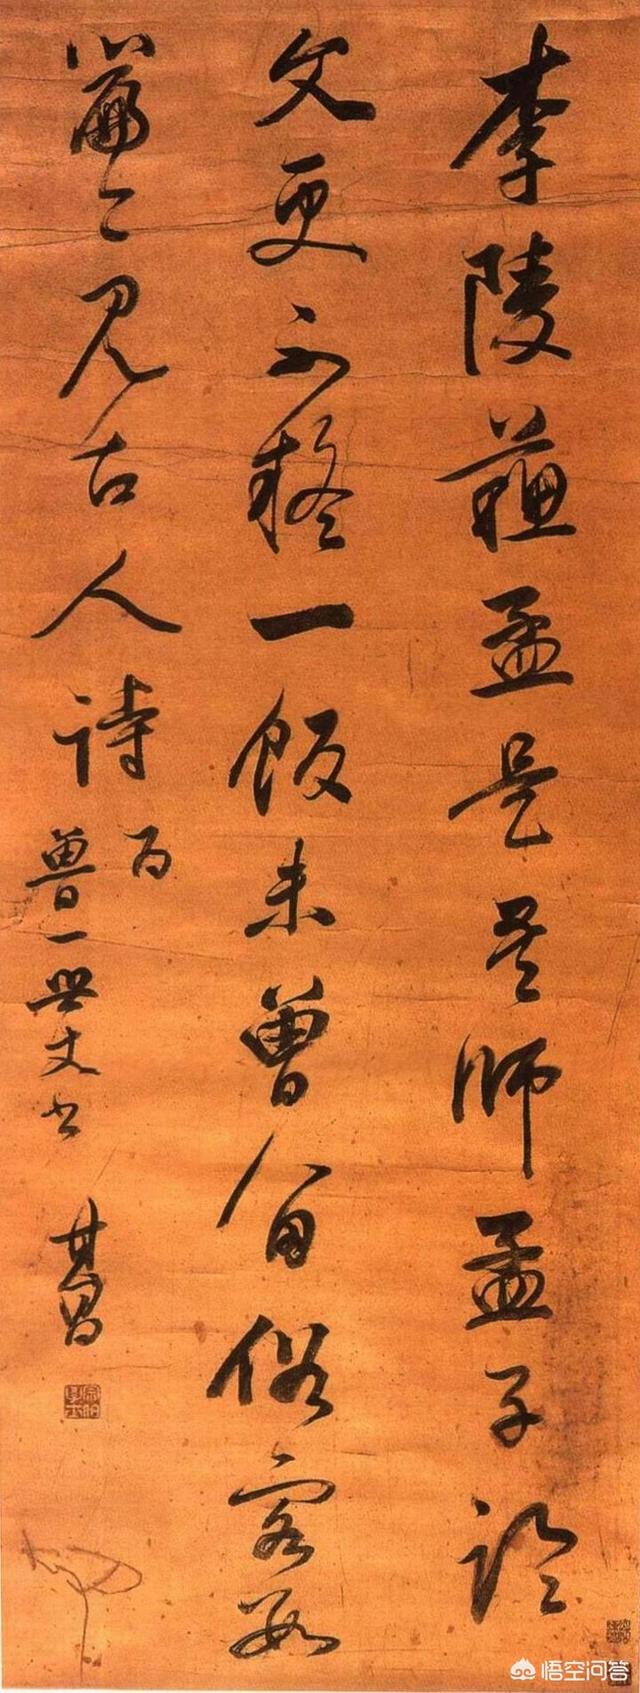 李陵蘓孟是吾師孟子論
文更不疑一飯未曾留俗客數
篇今見古人詩
為
一世丈書
其昌
悟空问答